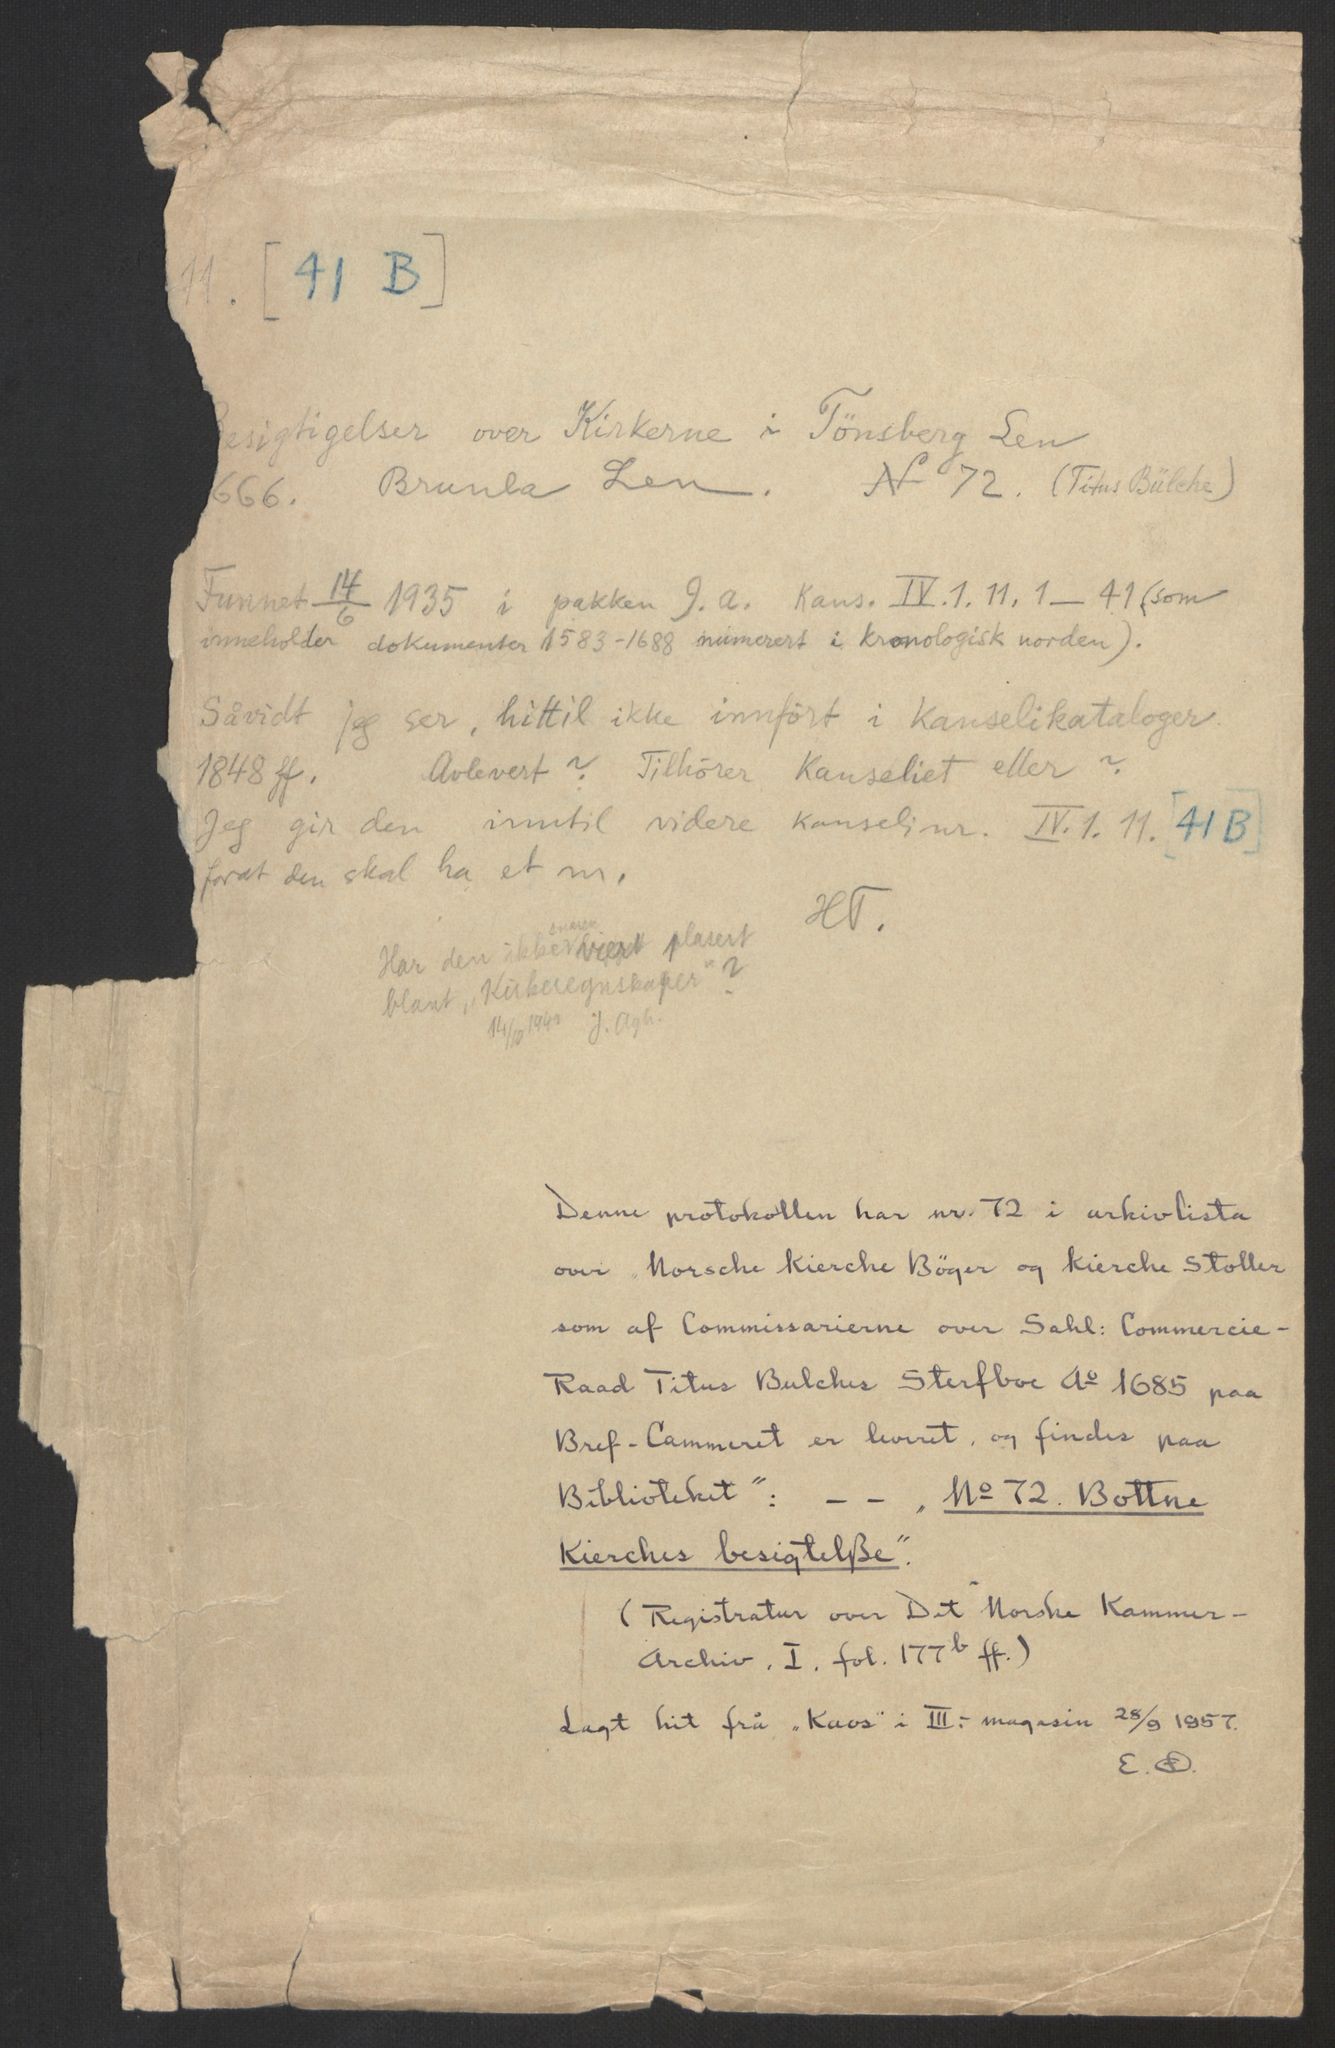 11. [41 B]
Besigtigelser over Kirkerne i Tönsberg Len
1666. Brunla Len. N° 72. (Titus Bülche)
Funnet 14/6 1935 i pakken J. a. Kans. IV. 1. 11. 1 — 41 (som
inneholder dokumenter 1583-1688 numerert i kronologisk orden).
Såvidt jeg ser, hittil ikke innfört i Kanselikataloger
1848 ff. Avlevert? Tilhörer Kanseliet eller?
Jeg gir den inntil videre kanselinr. IV. 1. 11. [41 B]
forat den skal ha et nr.
HT.
Har den ikke snarere vært plasert
blant „Kirkeregnskaper"?
J. Agh.
Denne protokollen har nr. 72 i arkivlista
over „Norsche Kierche Böger og Kierche Stoller
som af Commissarierne over Sahl: Commercie-
Raad Titus Bulches Sterfboe A° 1685 paa
Bref-Cammeret er leveret, og findes paa
Biblioteket": — — „N° 72. Bottne
Kierches besigtelße".
(Registratur over Det Norske Kammer-
Archiv. I. fol. 177b ff.)
Lagt hit frå „Kaos" i III: magasin 28/9 1957.